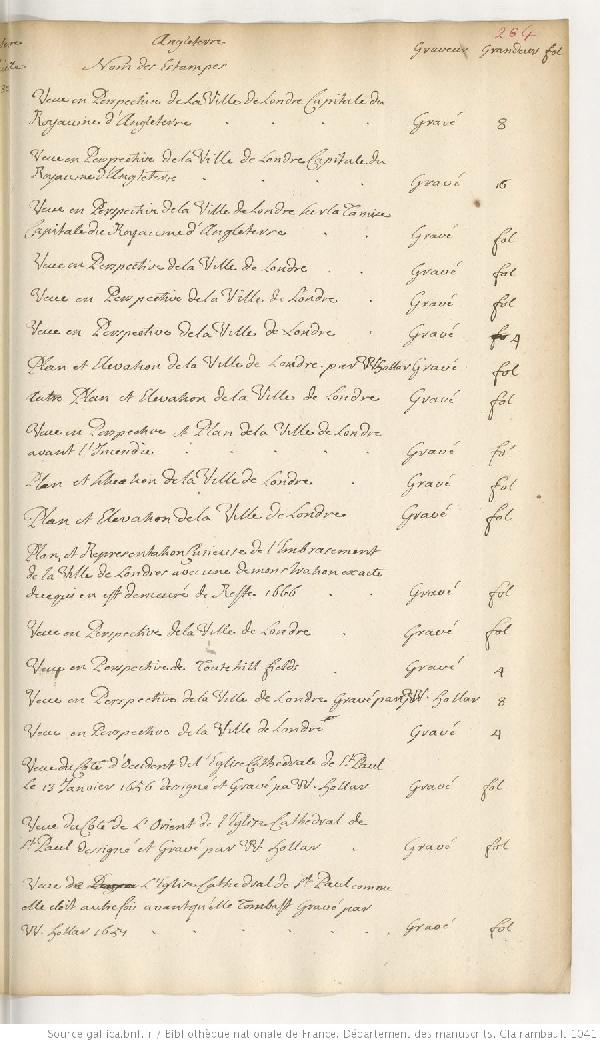 284
Angleterre
Nom des Estampes Graveur Grandeur fol
Veue en Perspective de La Ville de Londre Capitale du
Royaume d'Angleterre Gravé 8
Veue en Perspective de la Ville de Londre Capitale du
Royaume d'Angleterre Gravé 16
Veue en Perspective de la Ville de Londre sur la Tamise
Capitale du Royaume d'Angleterre Gravé fol
Veue en Perspective de la Ville de Londre Gravé fol
Veue en Perspective de la Ville de Londre Gravé fol
Veue en Perspective de la Ville de Londre Gravé 4
Plan et Elevation de la Ville de Londre par W Hollar Gravé fol
Autre Plan et Elevation de la Ville de Londre Gravé fol
Veue en Perspective et Plan de la Ville de Londre
avant l'Incendie Gravé fol
Plan et Elevation de la Ville de Londre Gravé fol
Plan et Elevation de la Ville de Londre Gravé fol
Plan et Representation Curieuse de l'Embrasement
de la Ville de Londres avec une demonstration exacte
de ce qui en est demeuré de Reste 1666 Gravé fol
Veue en Perspective de la Ville de Londre Gravé fol
Veue en Perspective de Toutehill fields Gravé 4
Veue en Perspective de la Ville de Londre Gravé par W. Hollar 8
Veue en Perspective de la Ville de Londre Gravé 4
Veue du Coté d'Occident de l'Eglise Cathedrale de St. Paul
le 13 Janvier 1656 designé et Gravé par W. Hollar Gravé fol
Veue du Coté de L'Orient de l'Eglise Cathédral de
St. Paul designé et Gravé par W. Hollar Gravé fol
Veue de L'Eglise Cathedral de St. Paul comme
elle étoit autrefois avant qu'elle Tombast Gravé par
W. Hollar 1657 Gravé fol
Source gallica.bnf.fr / Bibliothèque nationale de France. Département des manuscrits. Clairambault 1041